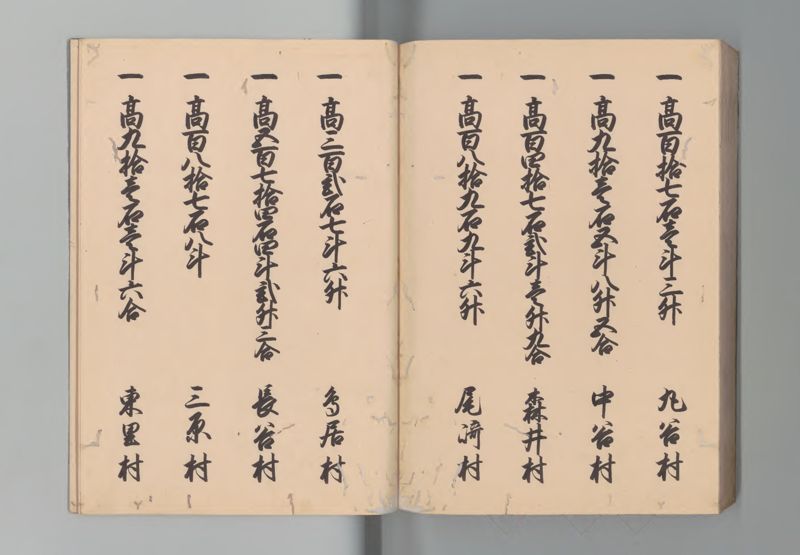 一 高百拾七石壱斗三升 丸谷村
一 高九拾壱石五斗八升五合 中谷村
一 高百四拾七石弐斗壱升九合 森井村
一 高百八拾九石九斗六升 尾崎村
一 高三百弐石七斗六升 鳥居村
一 高五百七拾四石四斗弐升三合 長谷村
一 高百八拾七石八斗 三原村
一 高九拾壱石壱斗六合 東里村